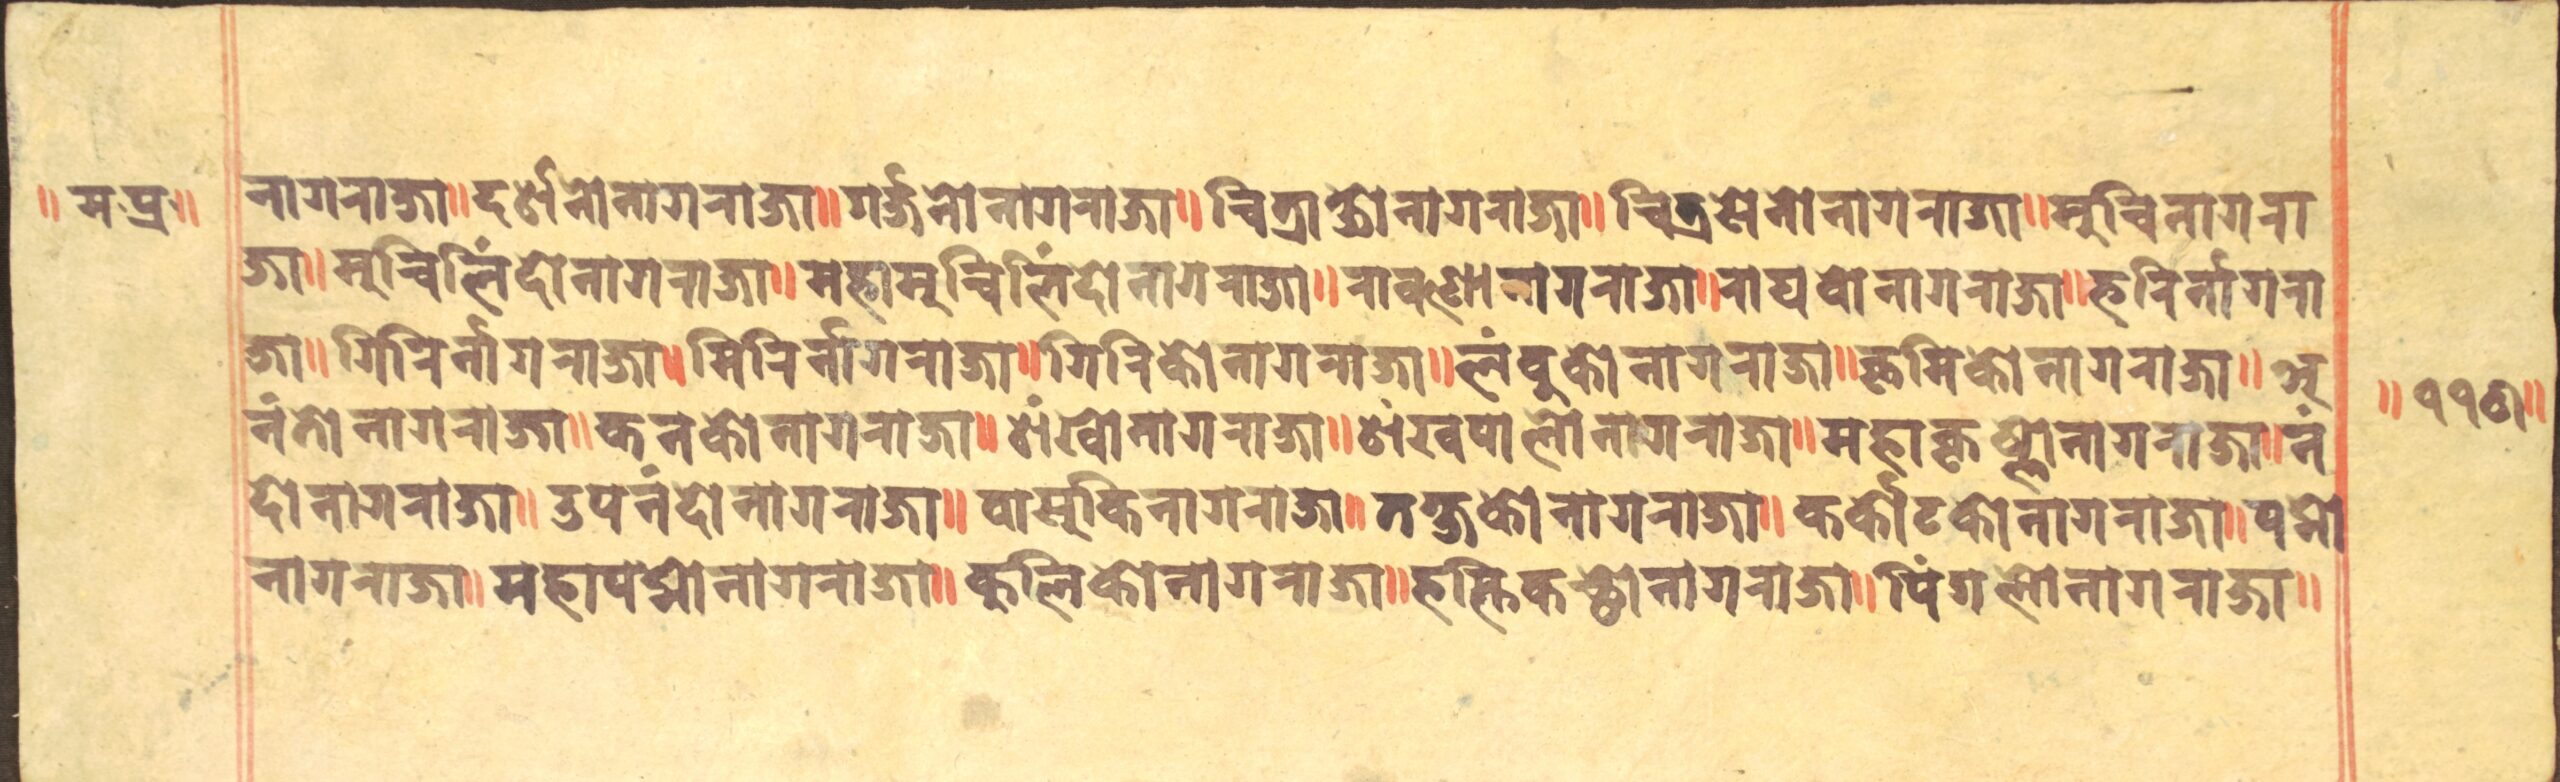 ॥ म·प्र·॥
नागराजा॥दर्शनोनागराजा॥गर्ज्जनोनागराजा॥चित्राक्षोनागराजा॥चित्रसेनोनागराजा॥मुचिनागरा
जा॥मुचिलिंदोनागराजा॥महामुचिलिंदोनागराजा॥रावणोनागराजा॥राघवोनागराजा॥हरिर्नागरा
जा॥गिरिर्नागराजा॥मिरिर्नागराजा॥गिरिकोनागराजा॥लंवुकोनागराजा॥कृमिकोनागराजा॥अ
नंतोनागराजा॥कनकोनागराजा॥शंखोनागराजा॥शंखपालोनागराजा॥महाकृष्णोनागराजा॥नं
दोनागराजा॥उपनंदोनागराजा॥वासुकिनागराजा॥तक्षकोनागराजा॥कर्कोटकोनागराजा॥पद्मो
नागराजा॥महापद्मोनागराजा॥कुलिकोनागराजा॥हस्तिकच्छोनागराजा॥पिंगलोनागराजा॥
॥११७॥